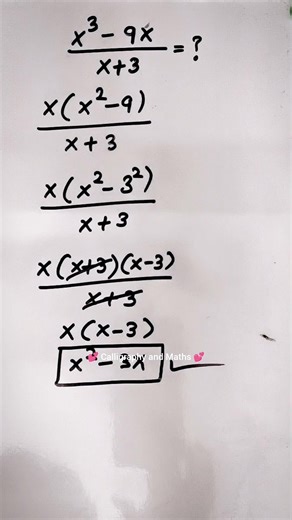 x³ - 9x
x+3
= ?
x(x²-9)
x+3
x(x²-3²)
x+3
x(x+3)(x-3)
x+3
x(x-3)
x² - 3x
💕 Calligraphy and Maths 💕